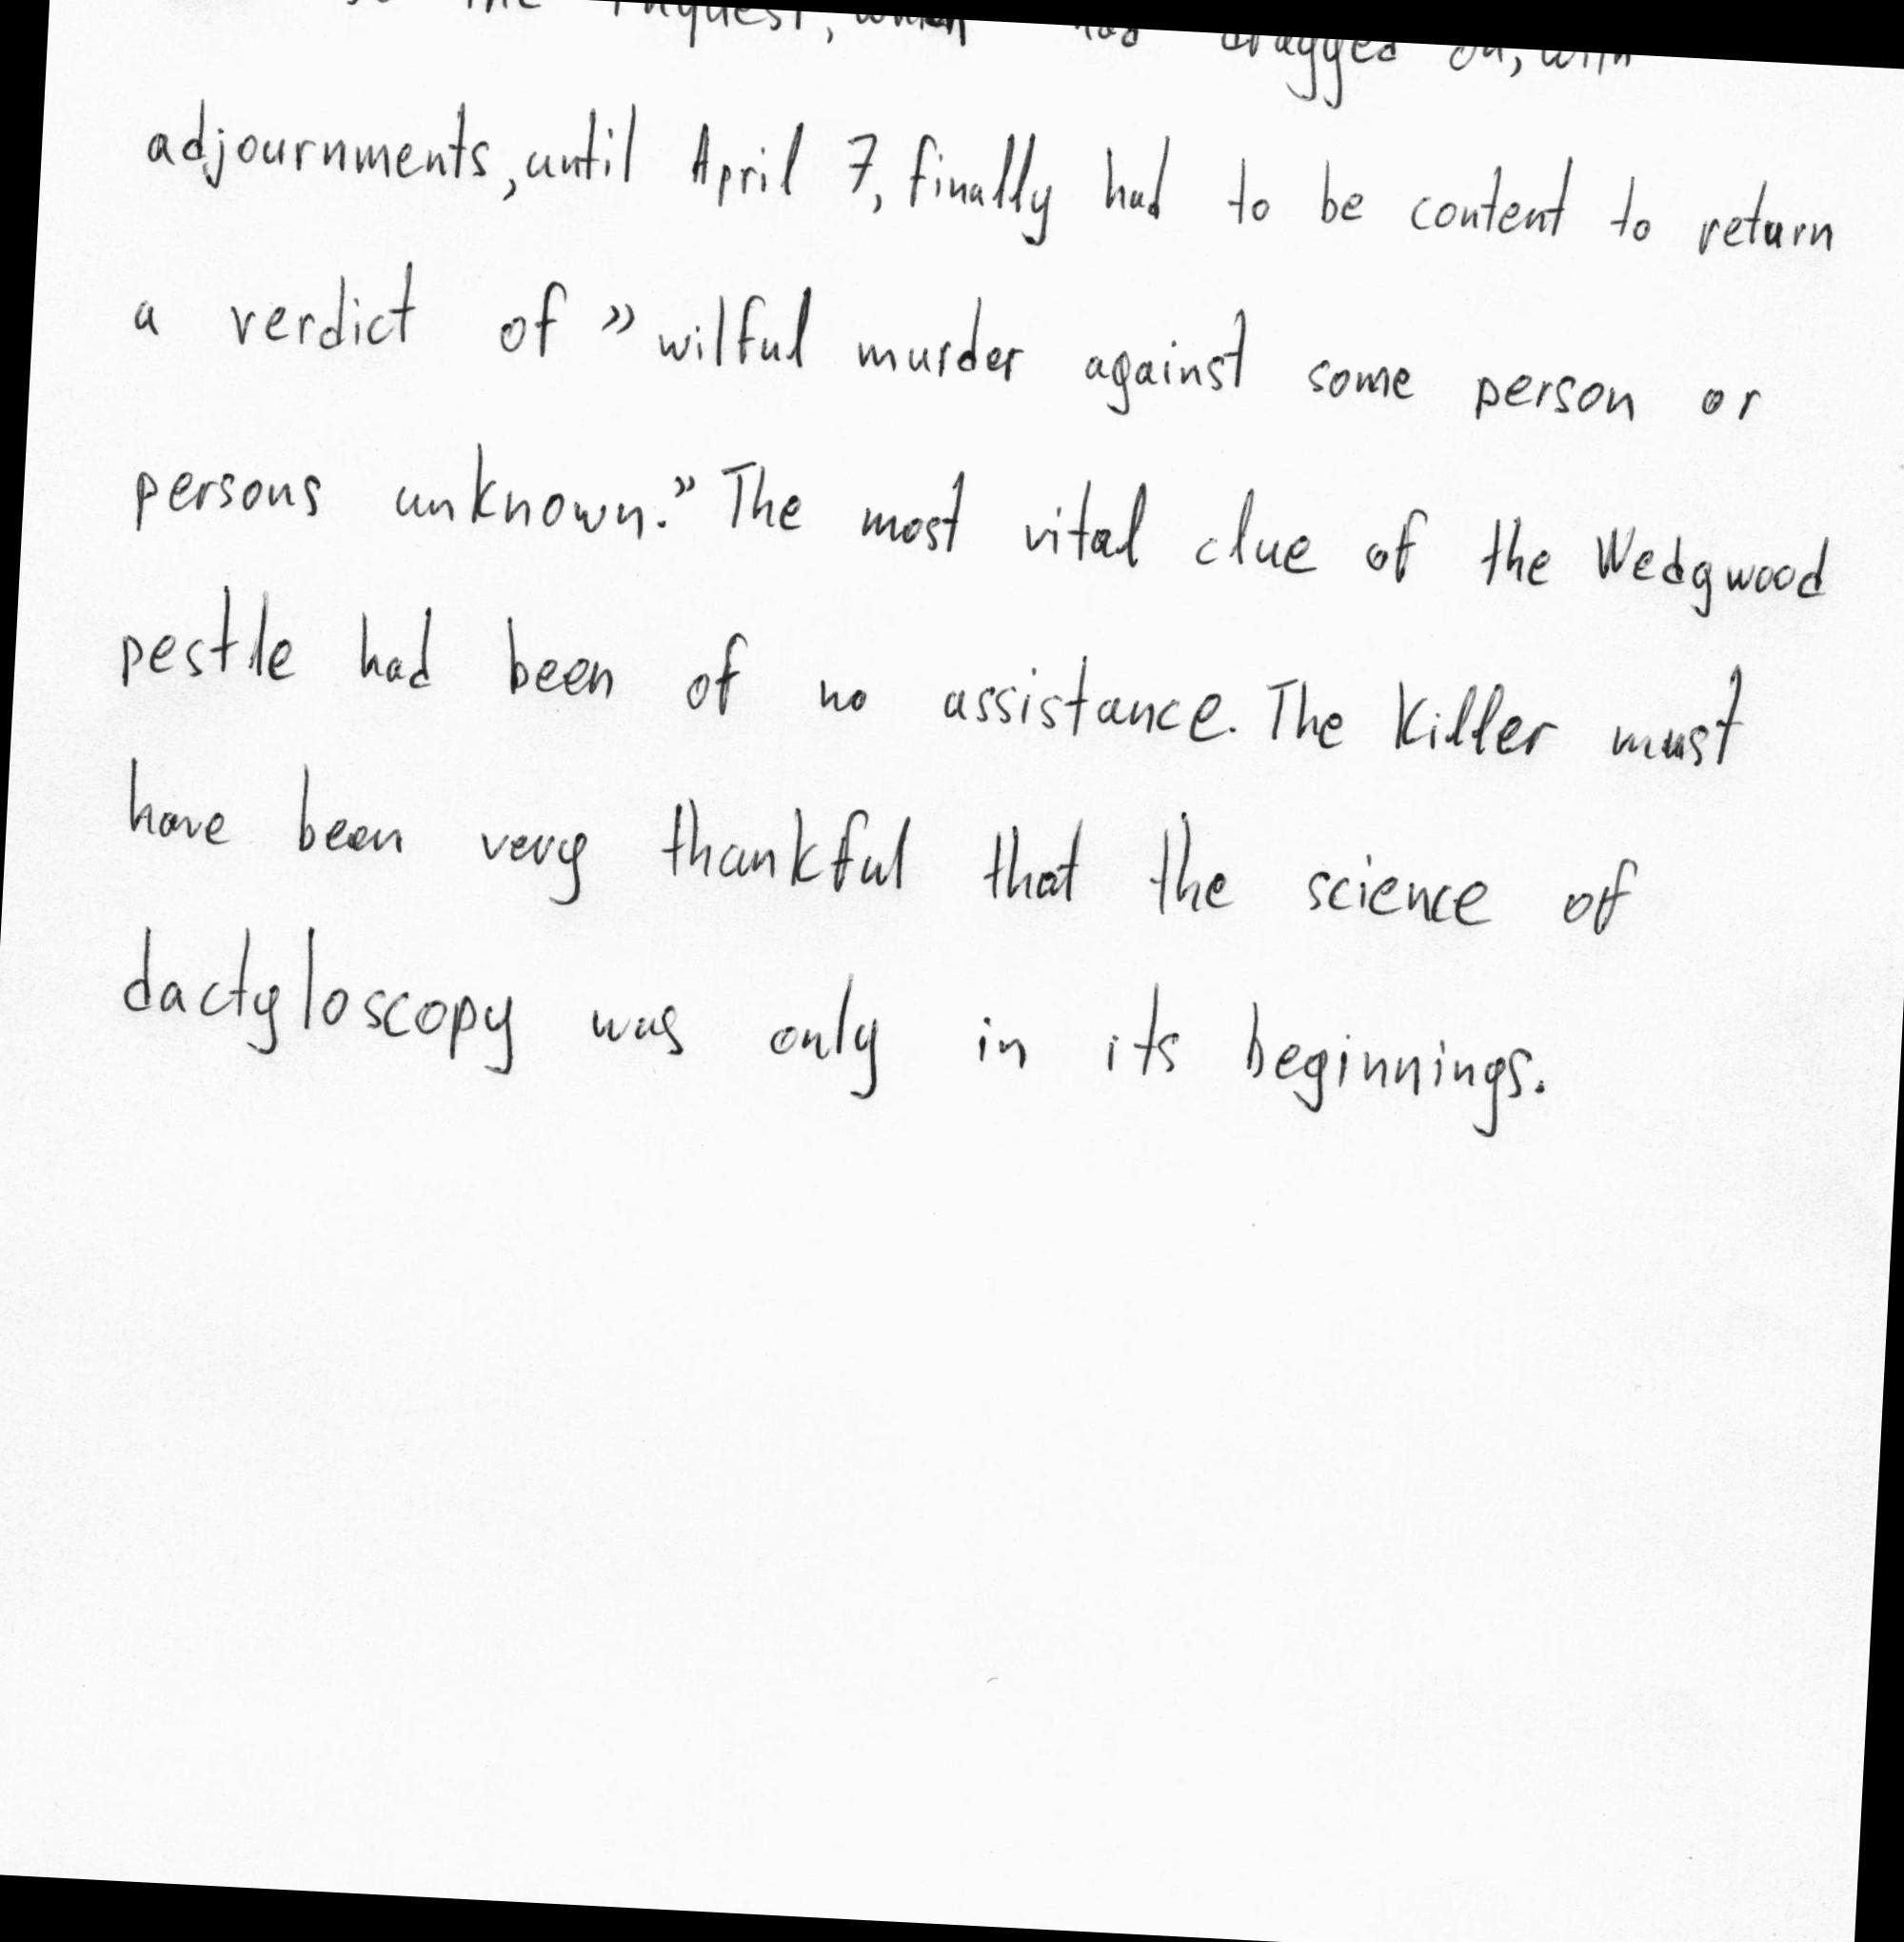 so the inquest, which had dragged on, with
adjournments, until April 7, finally had to be content to return
a verdict of "wilful murder against some person or
persons unknown." The most vital clue of the Wedgwood
pestle had been of no assistance. The killer must
have been very thankful that the science of
dactyloscopy was only in its beginnings.